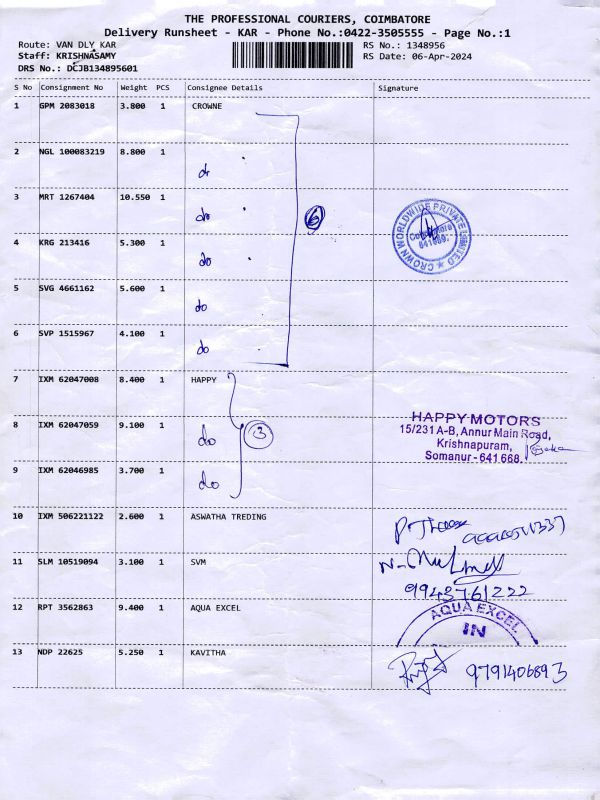 THE PROFESSIONAL COURIERS, COIMBATORE
Delivery Runsheet - KAR - Phone No.:0422-3505555 - Page No.:1
Route: VAN DLY KAR
RS No.: 1348956
Staff: KRISHNASAMY
RS Date: 06-Apr-2024
DRS No.: DCJB134895601
S No Consignment No Weight PCS Consignee Details Signature
1 GPM 2083018 3.800 1 CROWNE
2 NGL 100083219 8.800 1 do
3 MRT 1267404 10.550 1 do
6
4 KRG 213416 5.300 1 do
CROWN WORLDWIDE PRIVATE LIMITED
Coimbatore
641659.
5 SVG 4661162 5.600 1 do
6 SVP 1515967 4.100 1 do
7 IXM 62047008 8.400 1 HAPPY
8 IXM 62047059 9.100 1 do
3
HAPPY MOTORS
15/231 A-B, Annur Main Road,
Krishnapuram,
Somanur - 641 668.
9 IXM 62046985 3.700 1 do
10 IXM 506221122 2.600 1 ASWATHA TREDING
11 SLM 10519094 3.100 1 SVM
9943761222
12 RPT 3562863 9.400 1 AQUA EXCEL
AQUA EXCEL
IN
13 NDP 22625 5.250 1 KAVITHA
9791406893